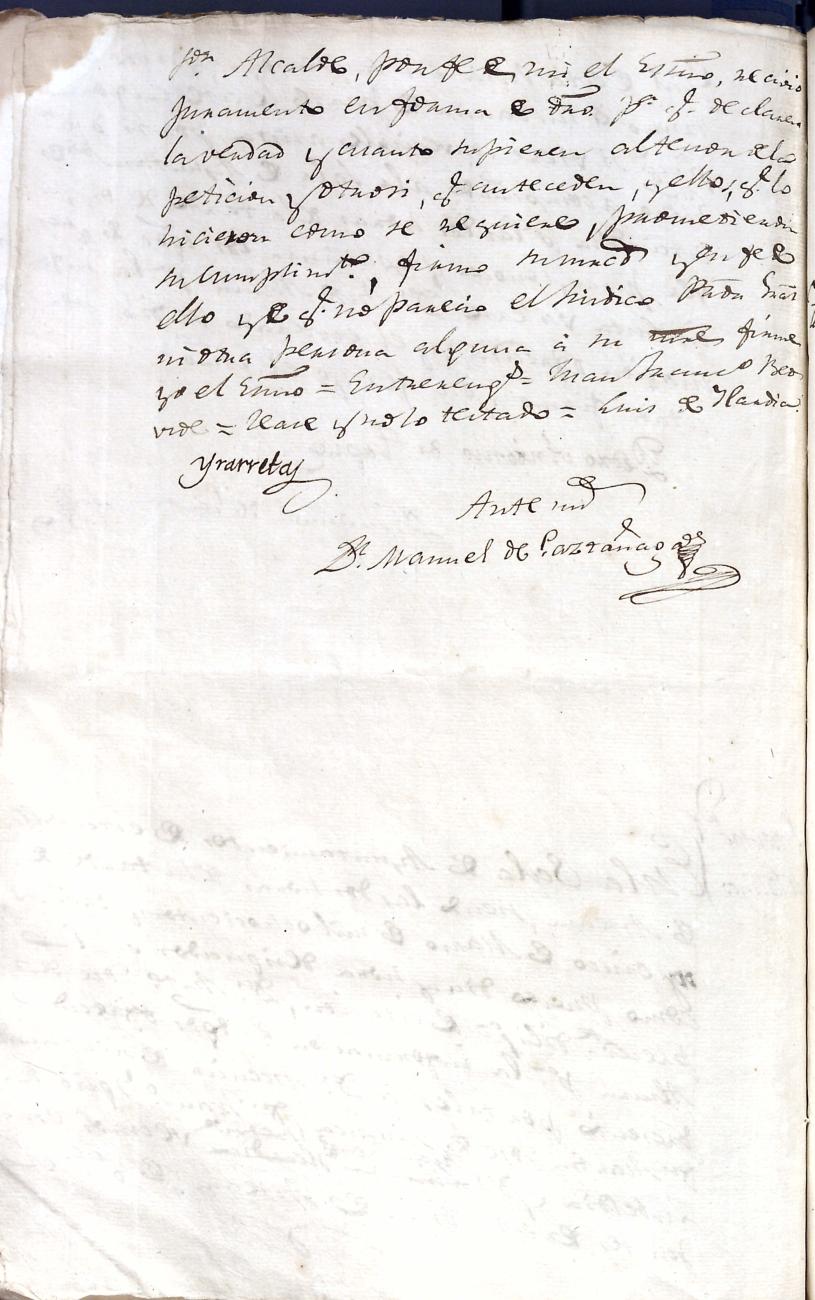 Sor Alcalde, por fee de mi el Essno, recivio
juramento en forma de dro pa q. declaren
la verdad y cuanto supieren al tenor de la
peticion y otrosi, q. anteceden, y ellos, q. lo
hicieron como se requiere, prometieron
su cumplimto, firmo su mrcd y en fee de
ello y de q. no parecio el Sindico
ni otra persona alguna à su firme
yo el Essno = Entrereng.s = Juan
vide = Vale y no lo testado = Luis de
Yrarretaj
Ante mi
Dn. Manuel de Pazranaga